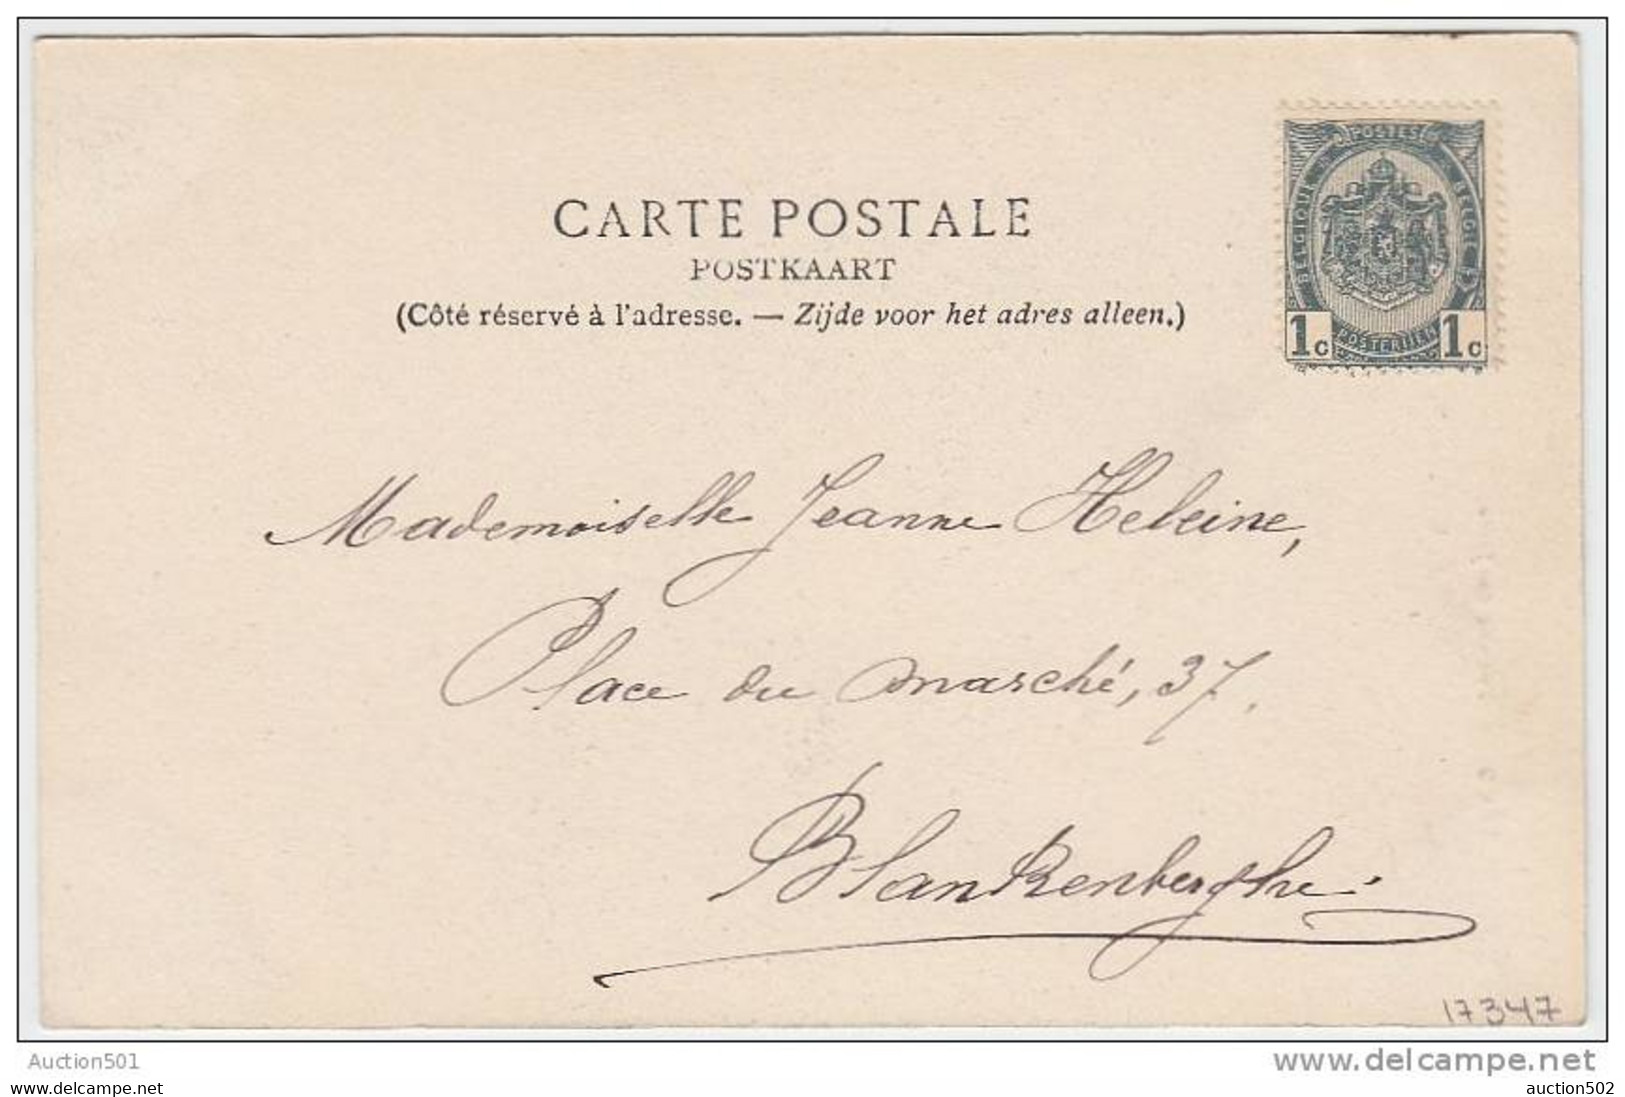 CARTE POSTALE
POSTKAART
(Côté réservé à l'adresse. — Zijde voor het adres alleen.)
POSTES
BELGIQUE
BELGIË
1c POSTERIJEN 1c
Mademoiselle Jeanne Heleine,
Place du marché, 37.
Blankenberghe.
17347
Auction501
www.delcampe.net
www.delcampe.net
auction502